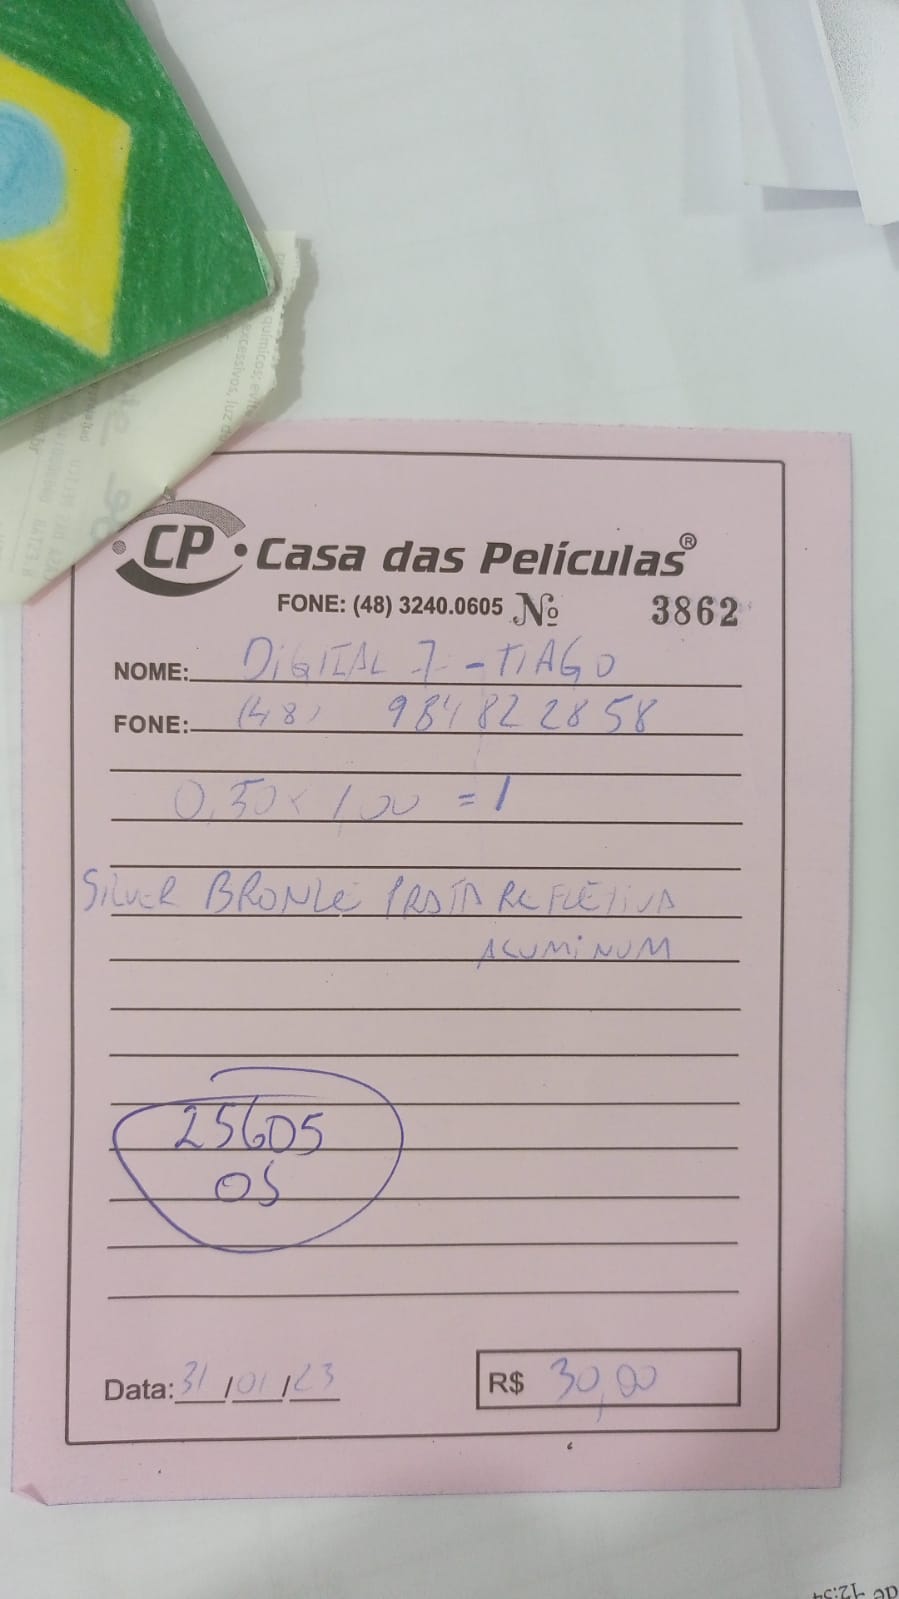 químicos; evite
excessivos, luz do
CP Casa das Películas®
FONE: (48) 3240.0605 Nº 3862
NOME: DIGITAL 7 - TIAGO
FONE: (48) 984822858
0,50 x 1,00 = 1
SILVER BRONZE PRATA REFLETIVA
ALUMINUM
25605
OS
Data: 31/01/23
R$ 30,00
12:54